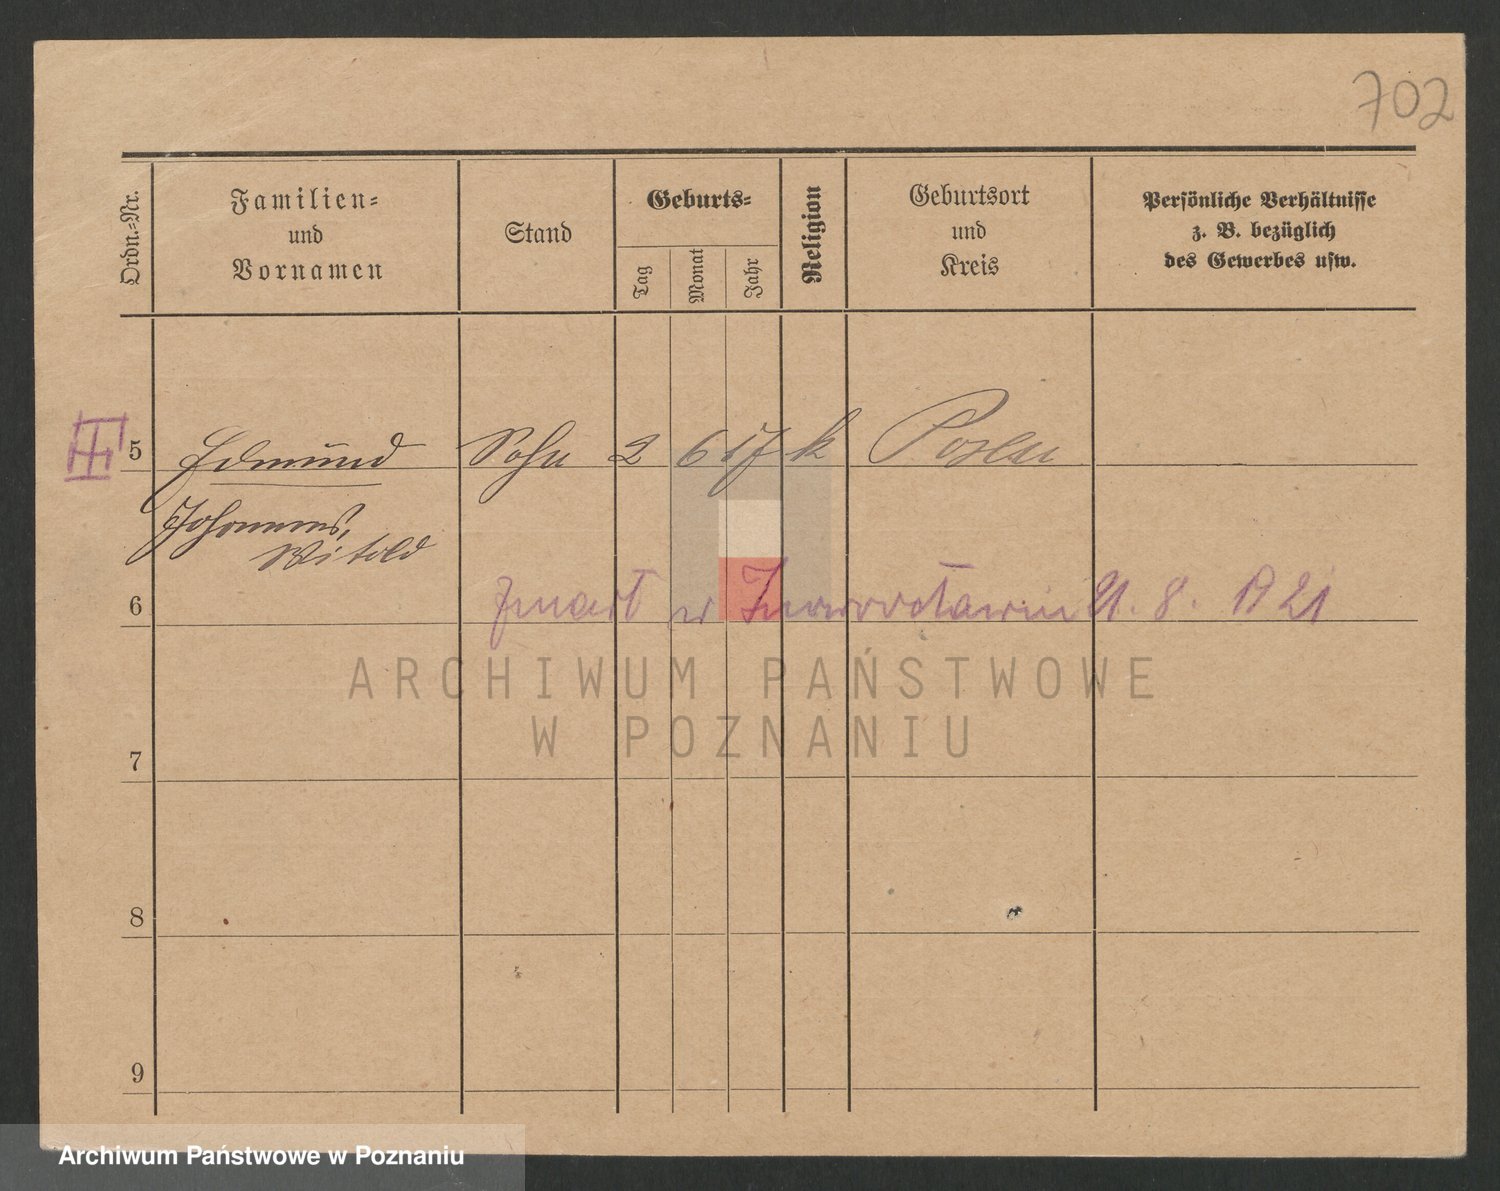 702
Ordn.-Nr.
Familien-
und
Vornamen
Stand
Geburts-
Tag
Monat
Jahr
Religion
Geburtsort
und
Kreis
Persönliche Verhältnisse
z. B. bezüglich
des Gewerbes usw.
5 Edmund Sohn 2 6 17 k Posen
Johannes,
Witold
6 zmarł w 21. 8. 1921
ARCHIWUM PAŃSTWOWE
W POZNANIU
7
8
9
Archiwum Państwowe w Poznaniu